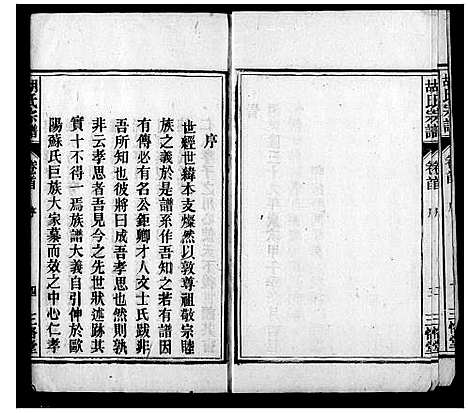 胡氏宗譜
卷首
序
三
三恪堂
序
世經世緯本支燦然以敦尊祖敬宗睦
族之義於是譜系作吾知之若有譜因
有傳必有名公鉅卿才人文士氏跋非
吾所知也彼將曰成吾孝思也然則孰
非云孝思者吾見今之先世狀述跡其
實十不得一焉族譜大義自引伸於歐
陽蘇氏巨族大家慕而效之中心仁孝
胡氏宗譜
卷首
序
四
三恪堂